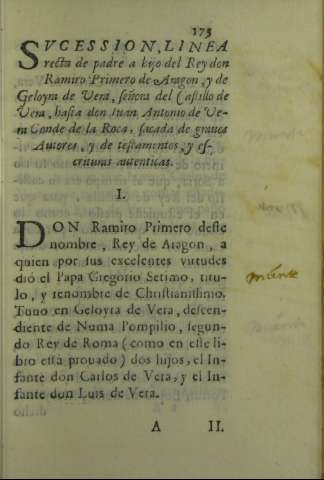 173
SVCESSION, LINEA
recta de padre a hijo del Rey don
Ramiro Primero de Aragon, y de
Geloyra de Vera, señora del Castillo de
Vera, hasta don Iuan Antonio de Ve-
ra Conde de la Roca, sacada de graues
Autores, y de testamentos, y es-
crituras autenticas.
I.
DON Ramiro Primero deste
nombre, Rey de Aragon, a
quien por sus excelentes virtudes
dió el Papa Gregorio Setimo, titu-
lo, y renombre de Christianissimo.
Tuuo en Geloyra de Vera, descen-
diente de Numa Pompilio, segun-
do Rey de Roma (como en este li-
bro està prouado) dos hijos, el In-
fante don Carlos de Vera, y el In-
fante don Luis de Vera.
A II.